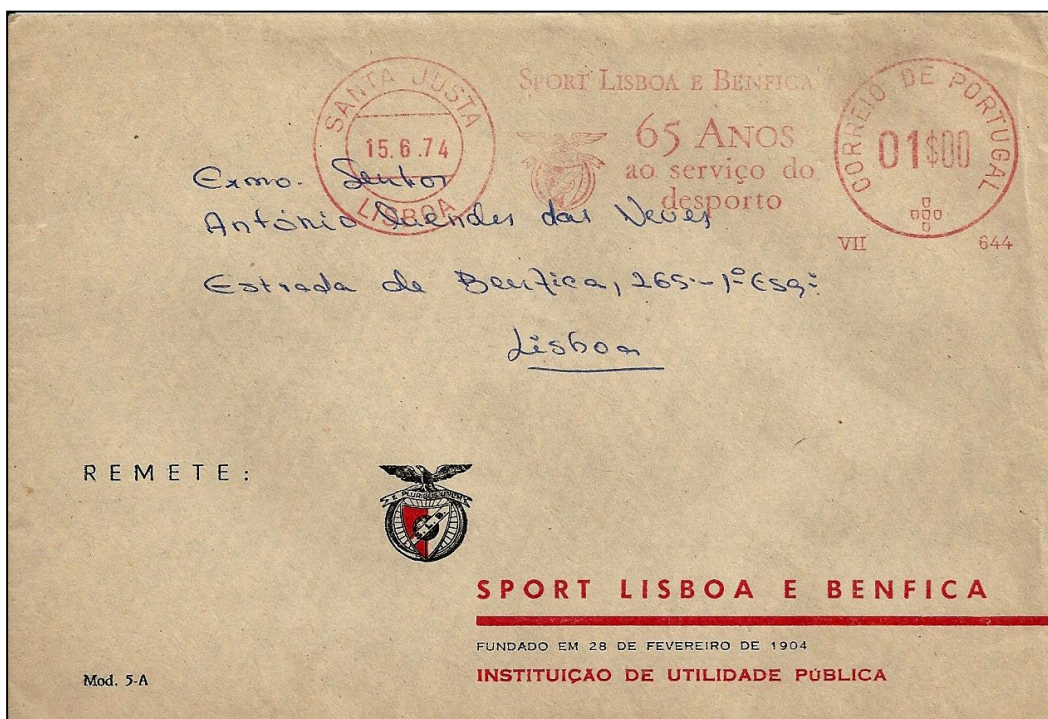 SANTA JUSTA
15.6.74
LISBOA
SPORT LISBOA E BENFICA
65 ANOS
ao serviço do
desporto
CORREIO DE PORTUGAL
01$00
VII 644
Exmo. Senhor
António Mendes das Neves
Estrada de Benfica, 265-1º Esqº
Lisboa
REMETE:
E PLURIBUS UNUM
S.L.B.
SPORT LISBOA E BENFICA
FUNDADO EM 28 DE FEVEREIRO DE 1904
INSTITUIÇÃO DE UTILIDADE PÚBLICA
Mod. 5-A